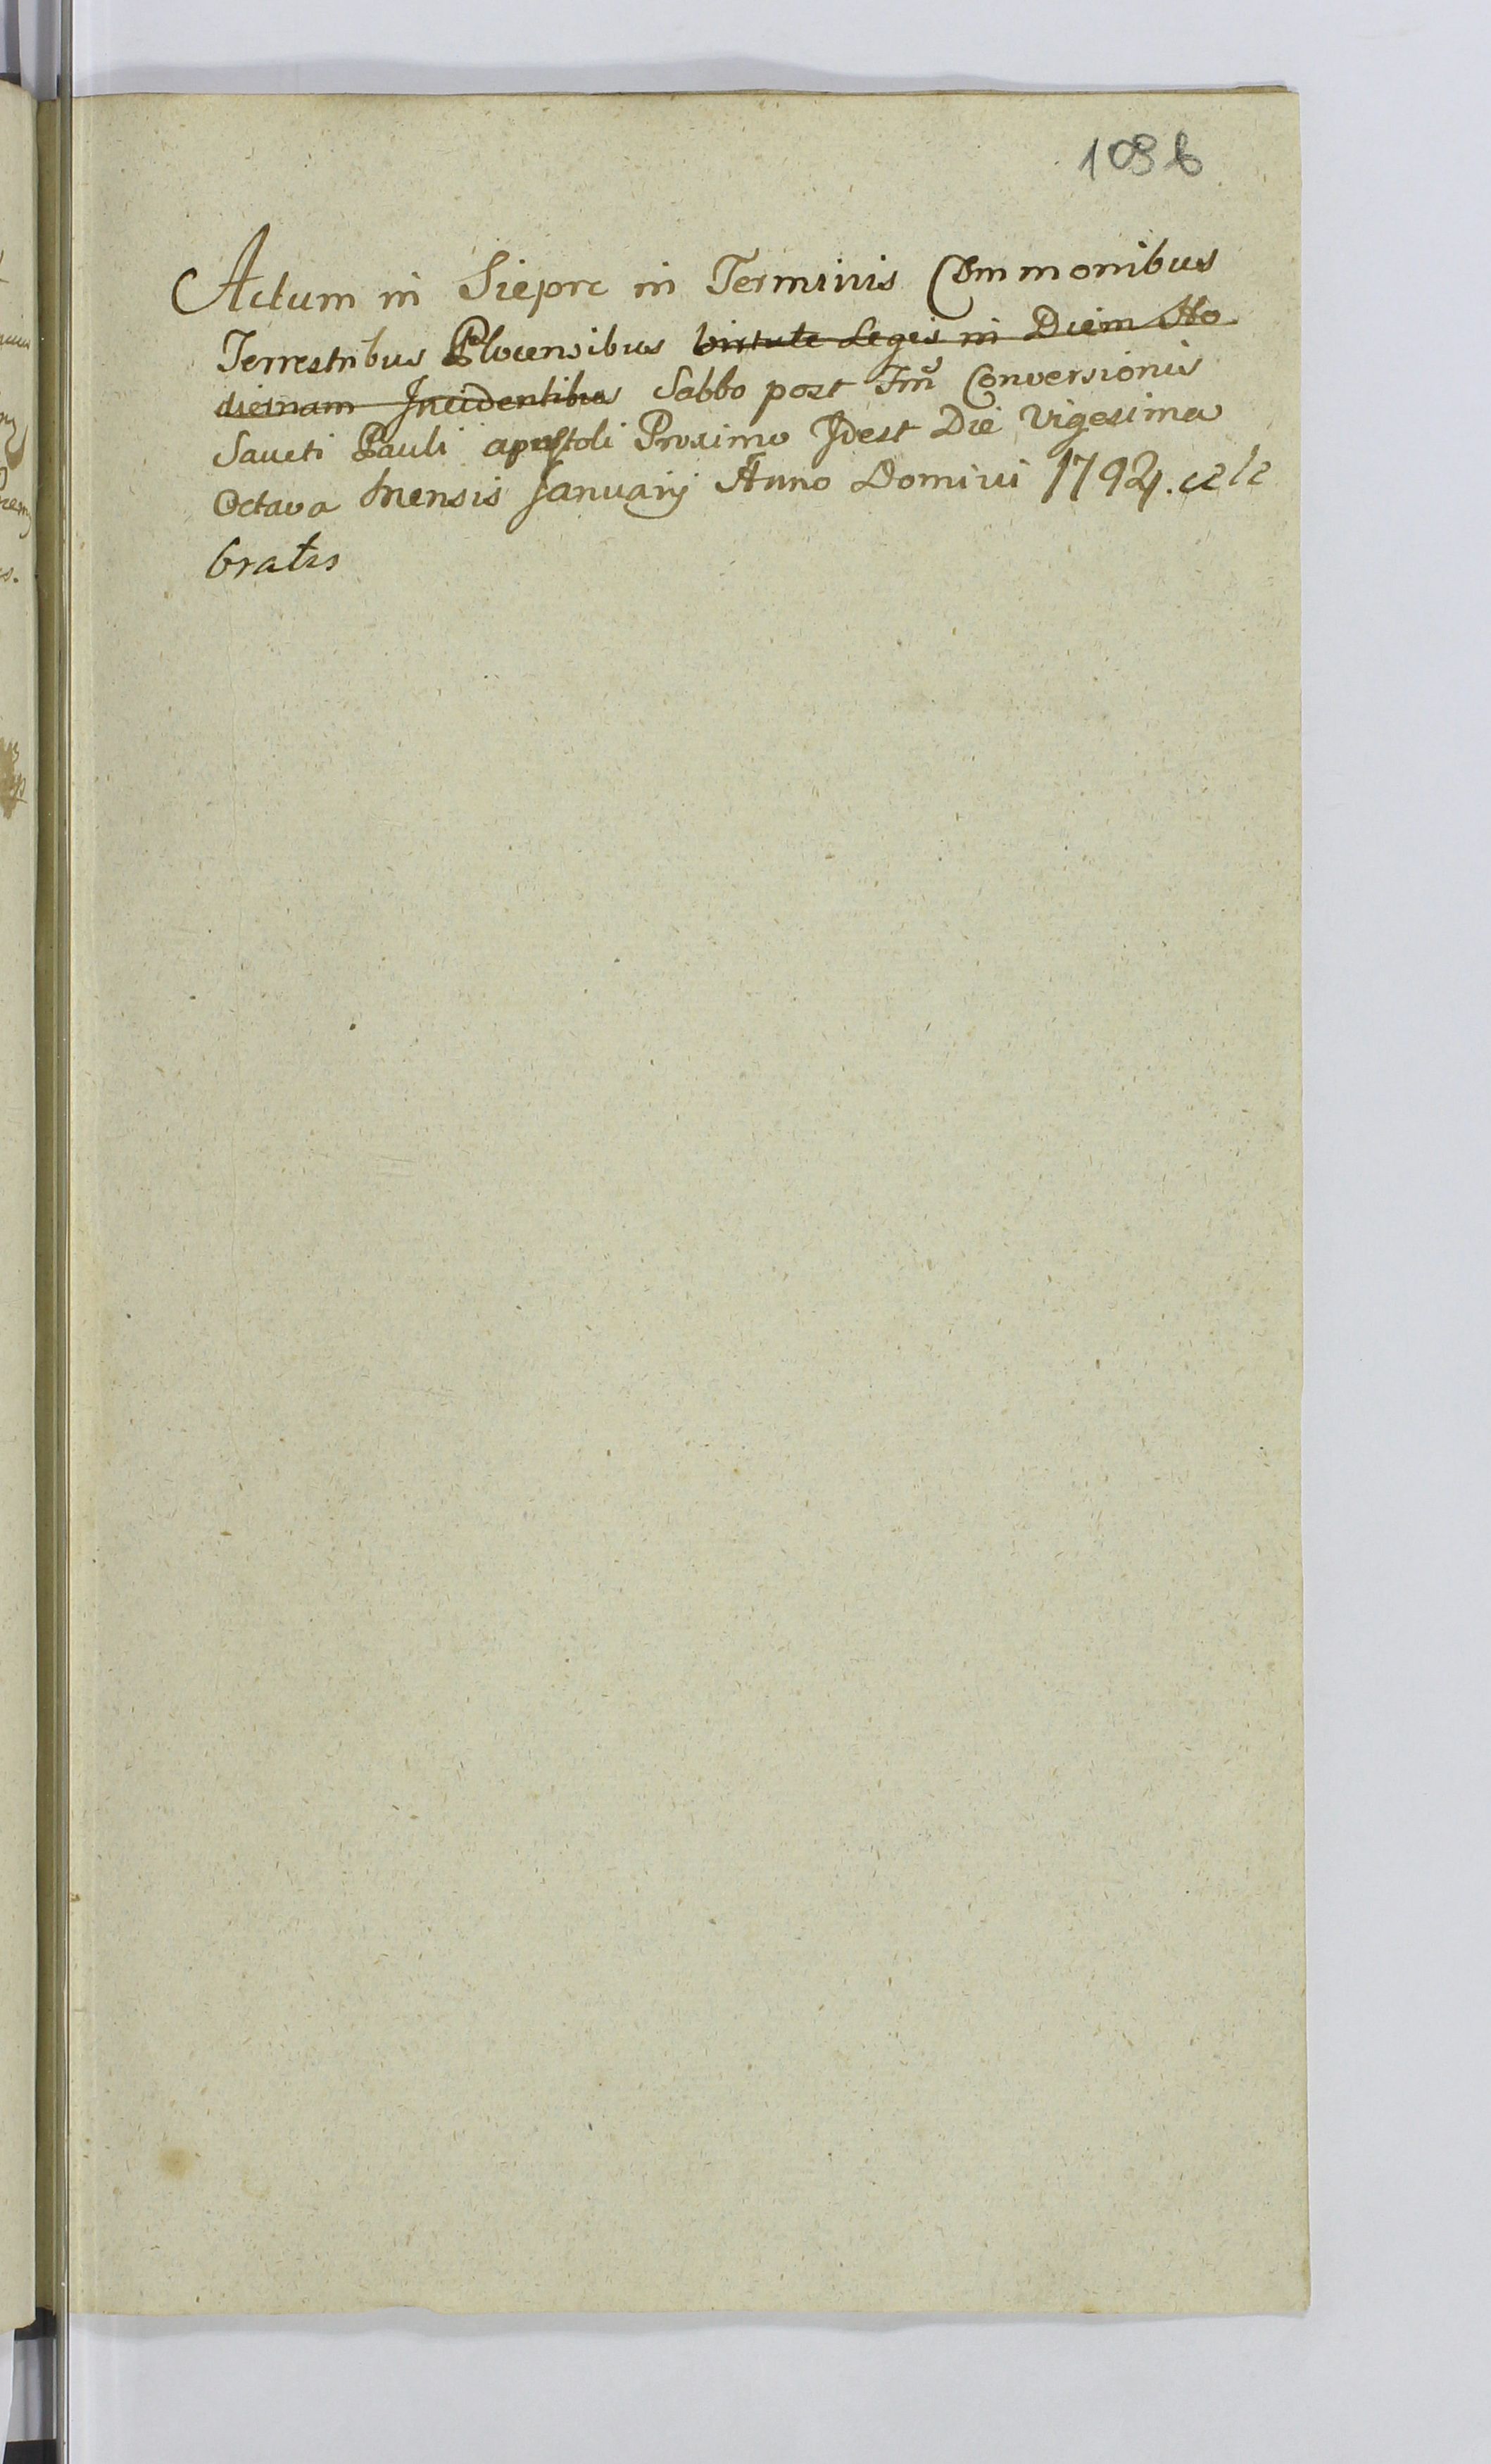 1096
Actum in Siepre in Terminis Commonibus
Terrestribus Plocensibus virtute Legis in Diem Ho
diernam Incidentibus Sabbo post Fm̃ Conversionis
Sancti Pauli apostoli Proximo Idest Die Vigesima
Octava Mensis Januarij Anno Domini 1792. cele
bratis